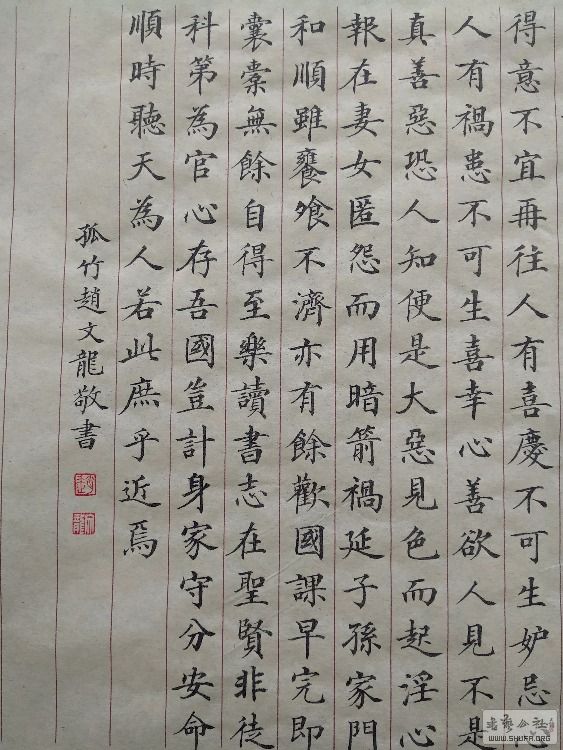 得意不宜再往人有喜慶不可生妒忌
人有禍患不可生喜幸心善欲人見不是
真善惡恐人知便是大惡見色而起淫心
報在妻女匿怨而用暗箭禍延子孫家門
和順雖饔飧不濟亦有餘歡國課早完即
囊橐無餘自得至樂讀書志在聖賢非徒
科第為官心存吾國豈計身家守分安命
順時聽天為人若此庶乎近焉
孤竹趙文龍敬書
WWW.SHUFA.ORG